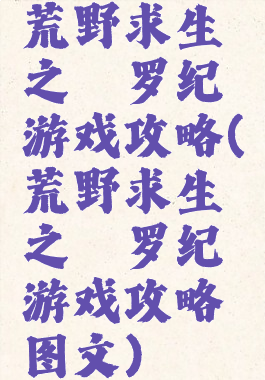 荒野求生
之 罗纪
游戏攻略(
荒野求生
之 罗纪
游戏攻略
图文)